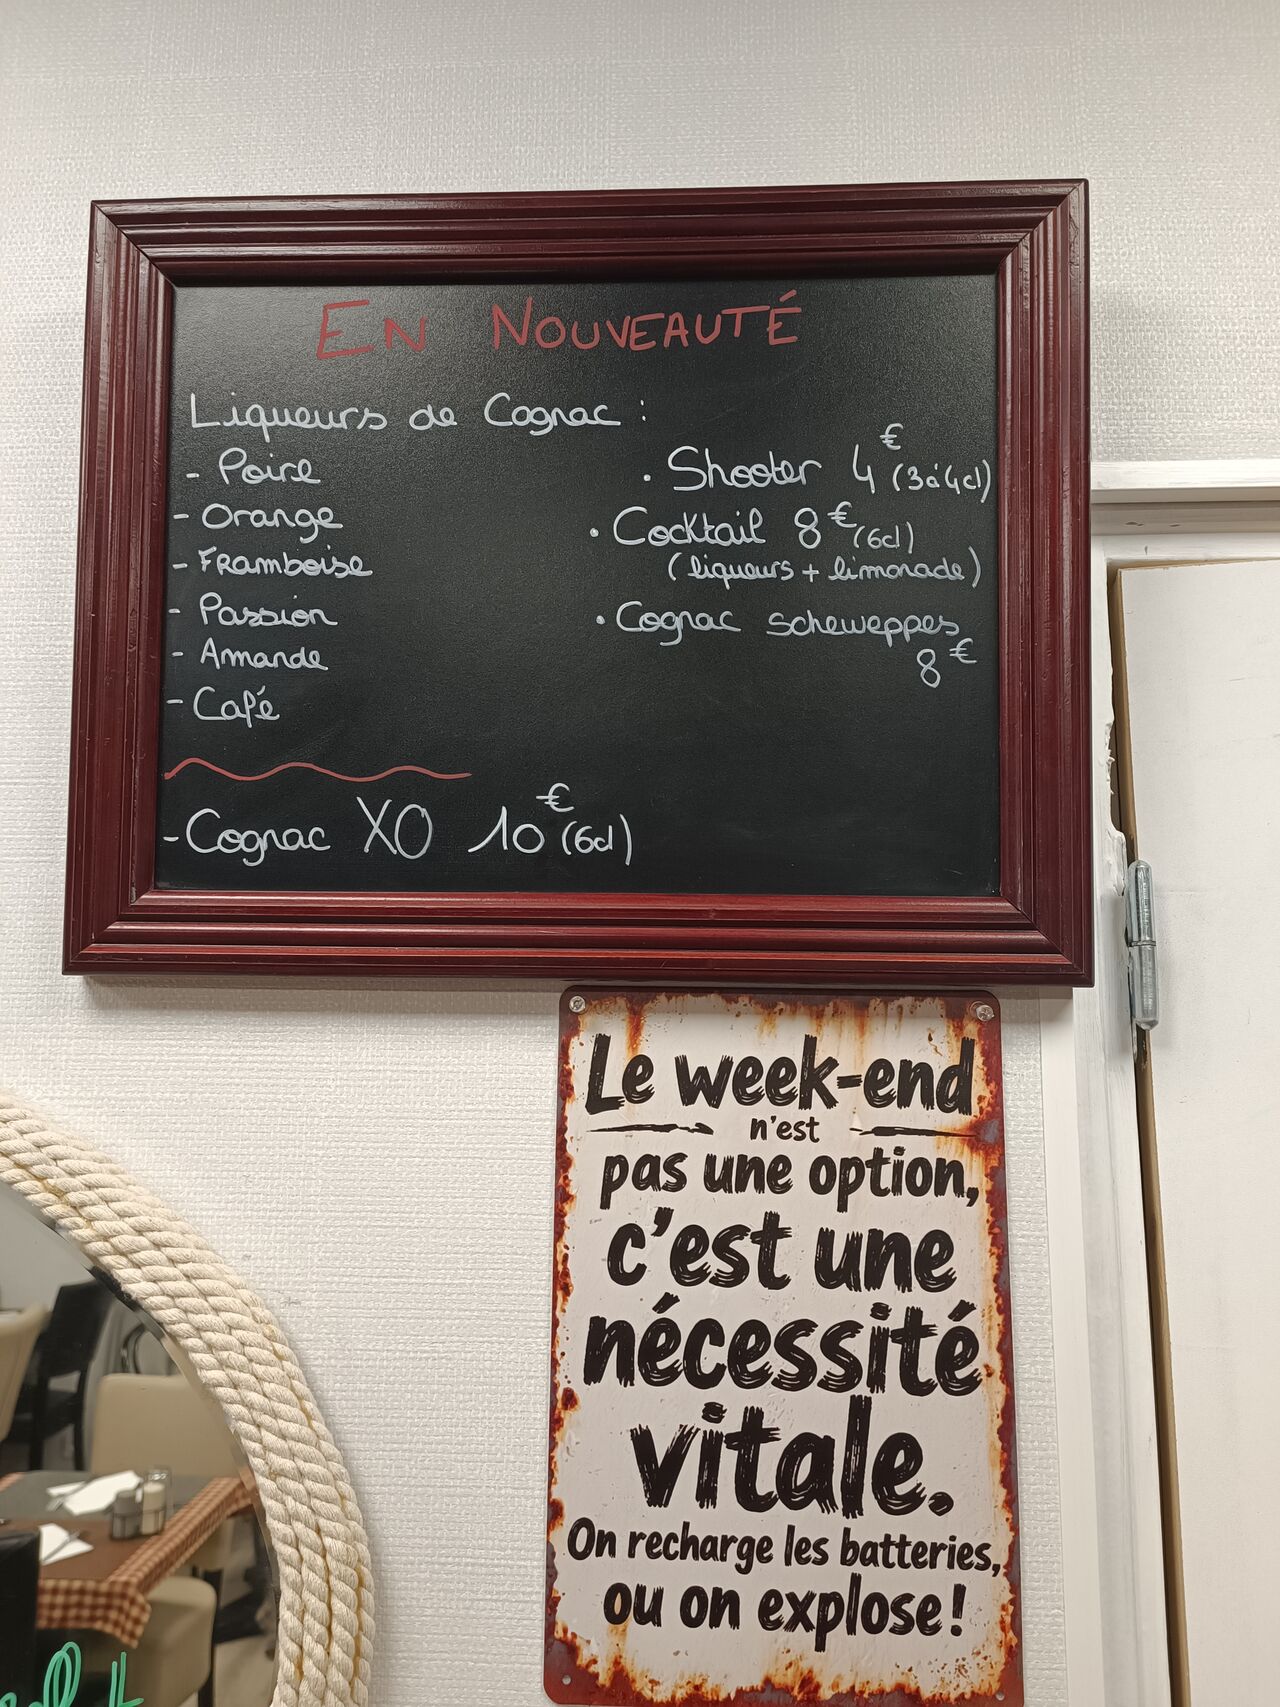 EN NOUVEAUTÉ
Liqueurs de Cognac :
- Poire
- Orange
- Framboise
- Passion
- Amande
- Café
• Shooter 4€ (3 à 4cl)
• Cocktail 8€ (6cl)
(liqueurs + limonade)
• Cognac scheweppes
8€
- Cognac XO 10€ (6cl)
Le week-end
n'est
pas une option,
c'est une
nécessité
vitale.
On recharge les batteries,
ou on explose !